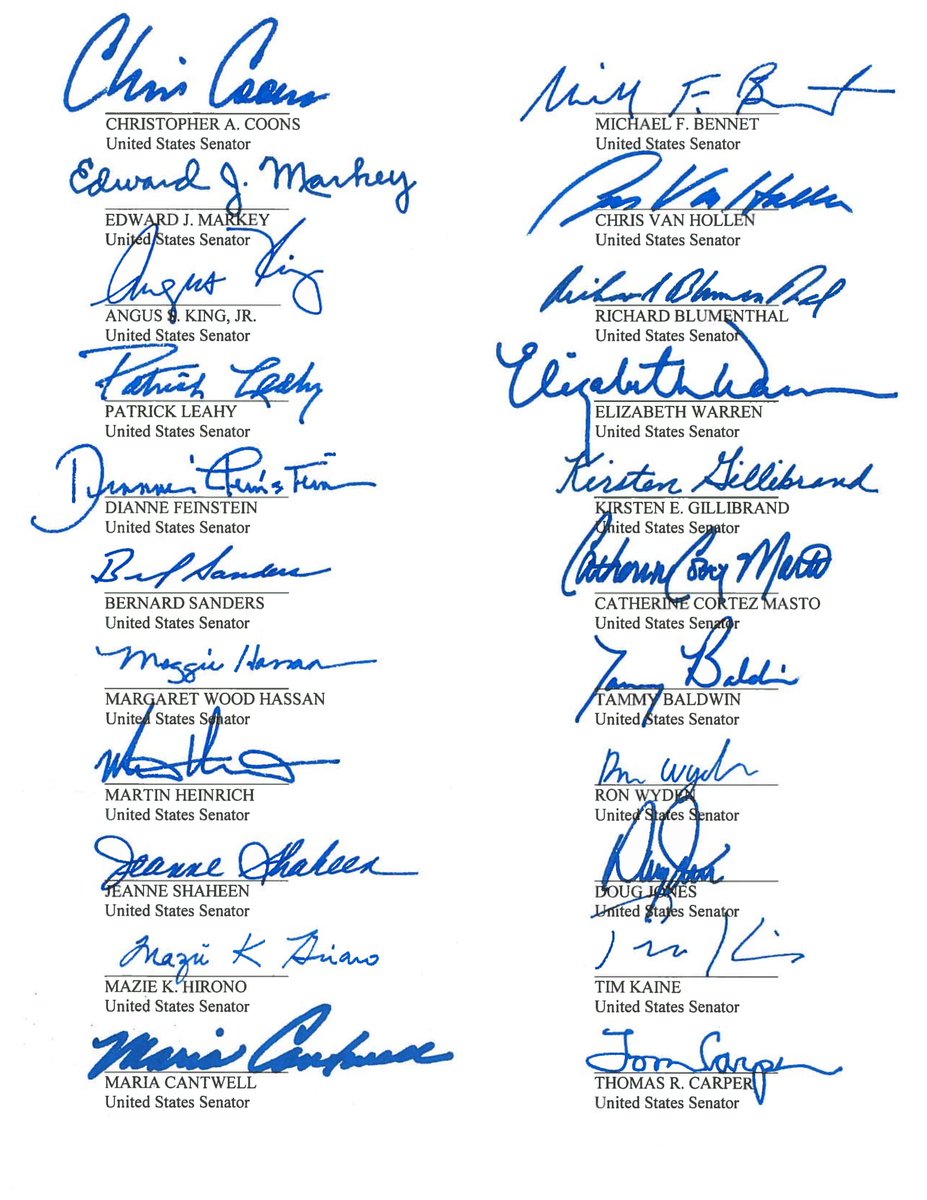 Chris Coons
CHRISTOPHER A. COONS
United States Senator
Edward J. Markey
EDWARD J. MARKEY
United States Senator
Angus King
ANGUS S. KING, JR.
United States Senator
Patrick Leahy
PATRICK LEAHY
United States Senator
Dianne Feinstein
DIANNE FEINSTEIN
United States Senator
Sanders
BERNARD SANDERS
United States Senator
Maggie Hassan
MARGARET WOOD HASSAN
United States Senator
MARTIN HEINRICH
United States Senator
Jeanne Shaheen
JEANNE SHAHEEN
United States Senator
Mazie K Hirono
MAZIE K. HIRONO
United States Senator
Maria Cantwell
MARIA CANTWELL
United States Senator
F. Bennet
MICHAEL F. BENNET
United States Senator
Van Hollen
CHRIS VAN HOLLEN
United States Senator
Richard Blumenthal
RICHARD BLUMENTHAL
United States Senator
Elizabeth Warren
ELIZABETH WARREN
United States Senator
Kirsten Gillibrand
KIRSTEN E. GILLIBRAND
United States Senator
Catherine Cortez Masto
CATHERINE CORTEZ MASTO
United States Senator
Tammy Baldwin
TAMMY BALDWIN
United States Senator
Ron Wyden
RON WYDEN
United States Senator
DOUG JONES
United States Senator
TIM KAINE
United States Senator
Tom Carper
THOMAS R. CARPER
United States Senator